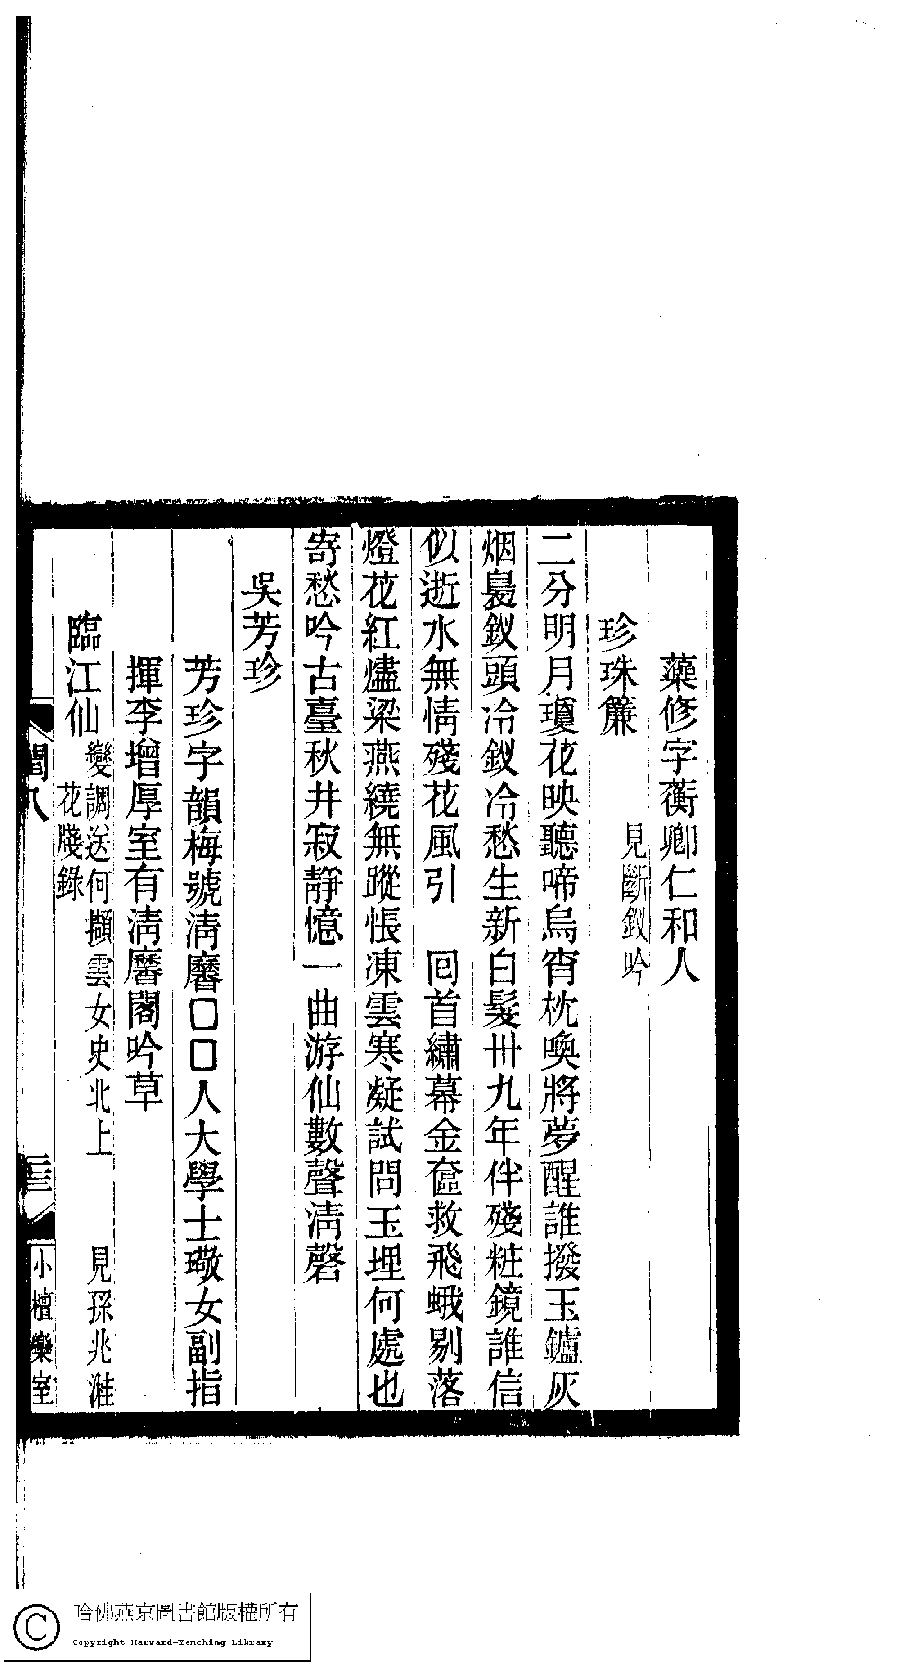 蘂修字蘅卿仁和人
珍珠簾 見斷釵吟
二分明月瓊花映聽啼烏宵枕喚將夢醒誰撥玉鑪灰
烟裊釵頭冷釵冷愁生新白髮卅九年伴殘粧鏡誰信
似逝水無情殘花風引 回首繡幕金奩救飛蛾剔落
燈花紅燼梁燕繞無蹤悵凍雲寒凝試問玉埋何處也
寄愁吟古臺秋井寂靜憶一曲游仙數聲淸磬
吳芳珍
芳珍字韻梅號淸麐□□人大學士璥女副指
揮李增厚室有淸麐閣吟草
臨江仙 變調送何擷雲女史北上 見孫兆溎
花牋錄
閨八
三三
小檀欒室
哈佛燕京圖書館版權所有
Copyright Harvard-Yenching Library